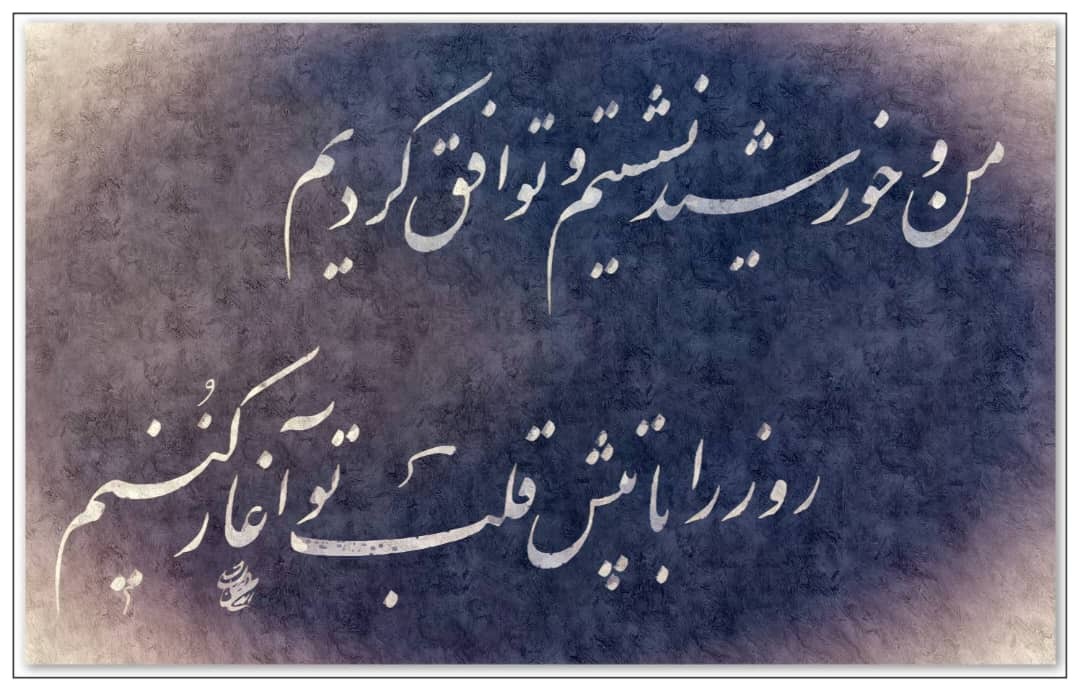 من و خورشید نشستیم و توافق کردیم
روز را با تپش قلب تو آغاز کُنیم